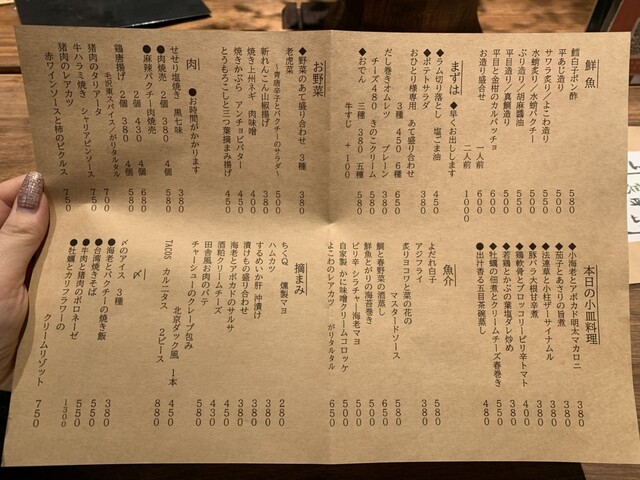 鮮魚
鱈白子ポン酢 580
平あじ造り 500
サワラ炙り／よこわ造り 550
水蛸炙り／水蛸パクチー 550
ぶり造り／胡麻醤油 550
平目造り／真鯛造り 550
平目と金柑のカルパッチョ 600
お造り盛合せ 一人前 600
二人前 1000
まずは ◆早くお出しします
◆ラム切り落とし 塩ごま油 450
◆ポテトサラダ 380
おひとり様専用 あて盛り合わせ 650
3種 450 6種
だし巻きオムレツ プレーン 380
チーズ480 きのこクリーム 580
◆おでん 三種 380 五種 580
牛すじ +100
お野菜
◆野菜のあて盛り合わせ 3種 380
老虎菜
～青唐辛子とパクチーのサラダ～ 500
新れんこん山椒揚げ 380
焼き上州ネギ 肉味噌 450
焼きかぶら アンチョビバター 450
とうもろこしと三つ葉掻き揚げ 450
肉 ●お時間がかかります
せせり塩焼き 黒七味 380
●肉焼売 2個 380 4個 680
●麻辣パクチー肉焼売
2個 430 4個 780
鶏唐揚げ 2個 380 4個 580
毛沢東スパイス／がりタルタル
猪肉のタリアータ 700
牛ハラミ焼き シャリアピンソース
猪肉のレアカツ 750
赤ワインソースと柿のピクルス
本日の小皿料理
◆小海老とアボカド明太マカロニ 380
◆茄子とあさりの旨煮 380
◆法連草と小柱ザーサイナムル 380
◆豚バラ大根甘辛煮 400
◆鶏軟骨とブロッコリーピリ辛トマト 400
◆若鶏とかぶの葉塩ダレ炒め 380
◆牡蠣の佃煮とクリームチーズ春巻き 550
●出汁香る五目茶碗蒸し 480
魚介
よだれ白子 580
アジフライ 380
炙りヨコワと菜の花の
マスタードソース 580
鯛と春野菜の酒蒸し 650
鮮魚とがりの海苔巻き 500
ピリ辛 シラチャー海老マヨ 500
自家製 かに味噌クリームコロッケ 500
よこわのレアカツ がりタルタル 650
摘まみ
ちくQ 燻製マヨ 280
ハムカツ 380
するめいか肝 沖漬け 380
漬けもの盛り合わせ 380
海老とアボカドのサルサ 450
酒粕クリームチーズ 430
田舎風お肉のパテ 480
チャーシューのクレープ包み 580
北京ダック風 1本 450
TACOS カルニタス 2ピース 880
〆
〆のアイス 3種 380
◆海老とパクチーの焼き飯 550
●台湾焼きそば 550
●牛肉と猪肉のボロネーゼ 1300
●牡蠣とカリフラワーの
クリームリゾット 750